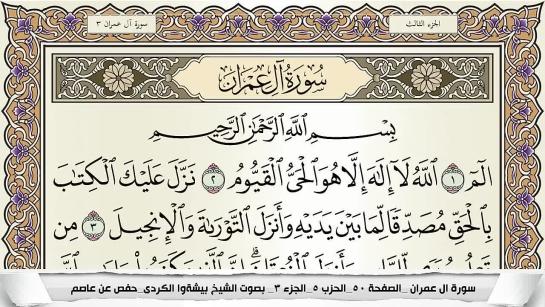 سورة آل عمران ٣
الجزء الثالث
سُورَةُ آلِ عِمْرَانَ
بِسْمِ اللَّهِ الرَّحْمَٰنِ الرَّحِيمِ
الٓمٓ ١ ٱللَّهُ لَآ إِلَٰهَ إِلَّا هُوَ ٱلْحَىُّ ٱلْقَيُّومُ ٢ نَزَّلَ عَلَيْكَ ٱلْكِتَٰبَ
بِٱلْحَقِّ مُصَدِّقًا لِّمَا بَيْنَ يَدَيْهِ وَأَنزَلَ ٱلتَّوْرَىٰةَ وَٱلْإِنجِيلَ ٣ مِن
سورة ال عمران _الصفحة ٥٠_الحزب ٥_الجزء ٣_ بصوت الشيخ بيشةوا الكردى_ حفص عن عاصم